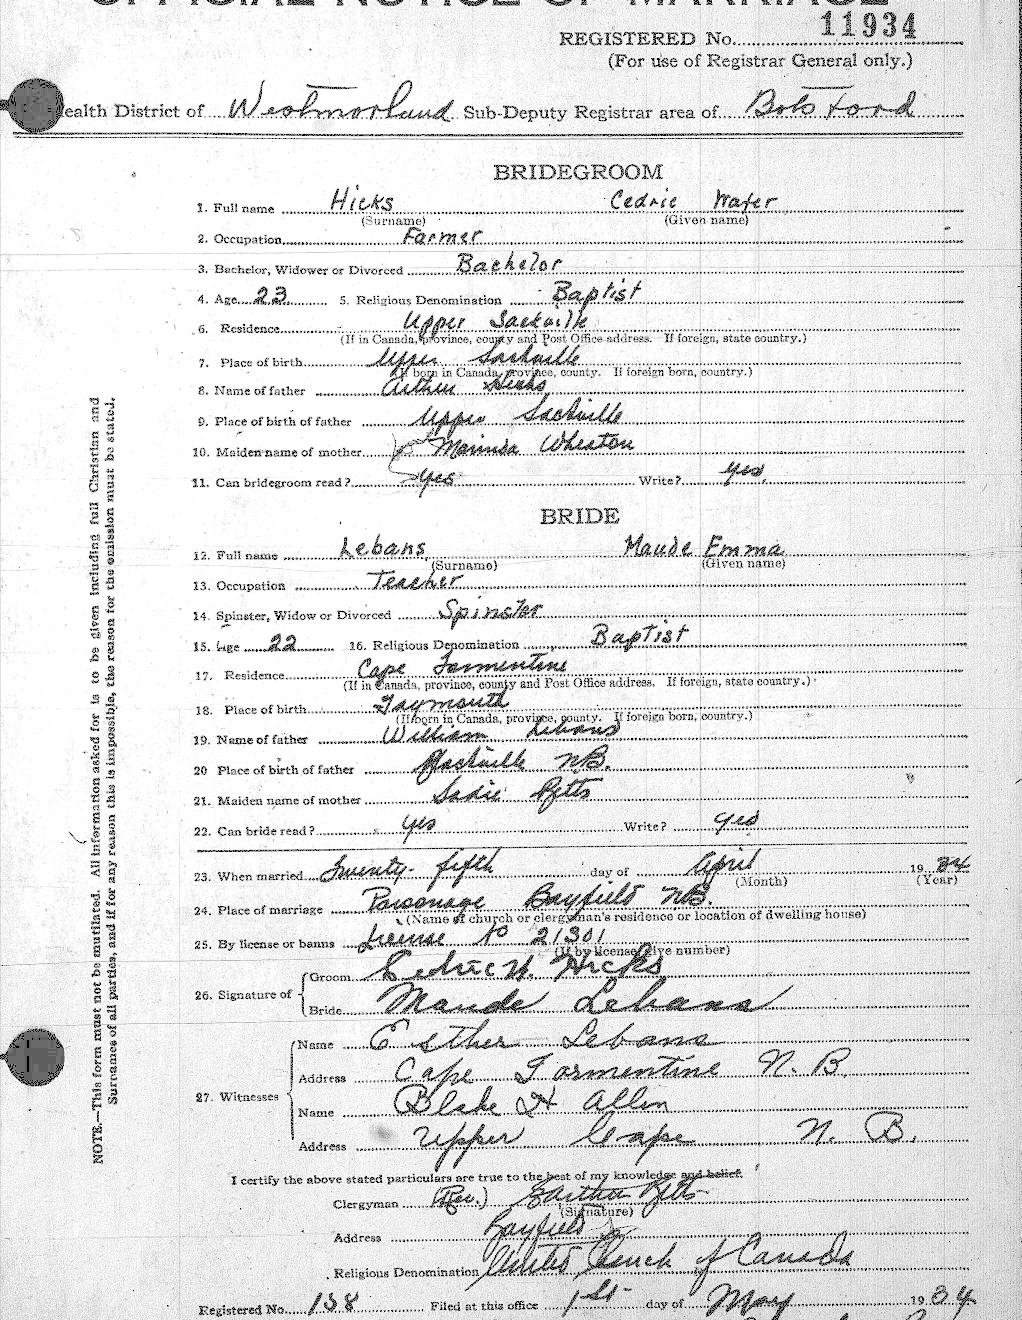 OFFICIAL NOTICE OF MARRIAGE
REGISTERED No. 11934
(For use of Registrar General only.)
ealth District of Westmorland Sub-Deputy Registrar area of Botsford
BRIDEGROOM
1. Full name Hicks Cedric Wafer
(Surname) (Given name)
2. Occupation Farmer
3. Bachelor, Widower or Divorced Bachelor
4. Age 23 5. Religious Denomination Baptist
6. Residence Upper Sackville
(If in Canada, province, county and Post Office address. If foreign, state country.)
7. Place of birth Upper Sackville
(If born in Canada, province, county. If foreign born, country.)
8. Name of father Arthur Hicks
9. Place of birth of father Upper Sackville
10. Maiden name of mother Wheaton
11. Can bridegroom read? yes Write? yes.
BRIDE
12. Full name Lebans Maude Emma
(Surname) (Given name)
13. Occupation Teacher
14. Spinster, Widow or Divorced Spinster
15. Age 22 16. Religious Denomination Baptist
17. Residence Cape Tormentine
(If in Canada, province, county and Post Office address. If foreign, state country.)
18. Place of birth Taymouth
(If born in Canada, province, county. If foreign born, country.)
19. Name of father William Lebans
20 Place of birth of father Sackville NB.
21. Maiden name of mother Sadie Betts
22. Can bride read? yes Write? yes
23. When married Twenty-fifth day of April 19 34
(Month) (Year)
24. Place of marriage Parsonage Bayfield NB.
(Name of church or clergyman's residence or location of dwelling house)
25. By license or banns License No 21301
(If by license, give number)
26. Signature of Groom Cedric W. Hicks
Bride Maude Lebans
27. Witnesses Name Esther Lebans
Address Cape Tormentine N.B.
Name Blake H Allen
Address Upper Cape N. B.
I certify the above stated particulars are true to the best of my knowledge and belief.
Clergyman (Rev.) Betts
(Signature)
Address Bayfield
Religious Denomination United Church of Canada
Registered No. 138 Filed at this office 1st day of May 19 34
NOTE.—This form must not be mutilated. All information asked for is to be given including full Christian and
Surnames of all parties, and if for any reason this is impossible, the reason for the omission must be stated.